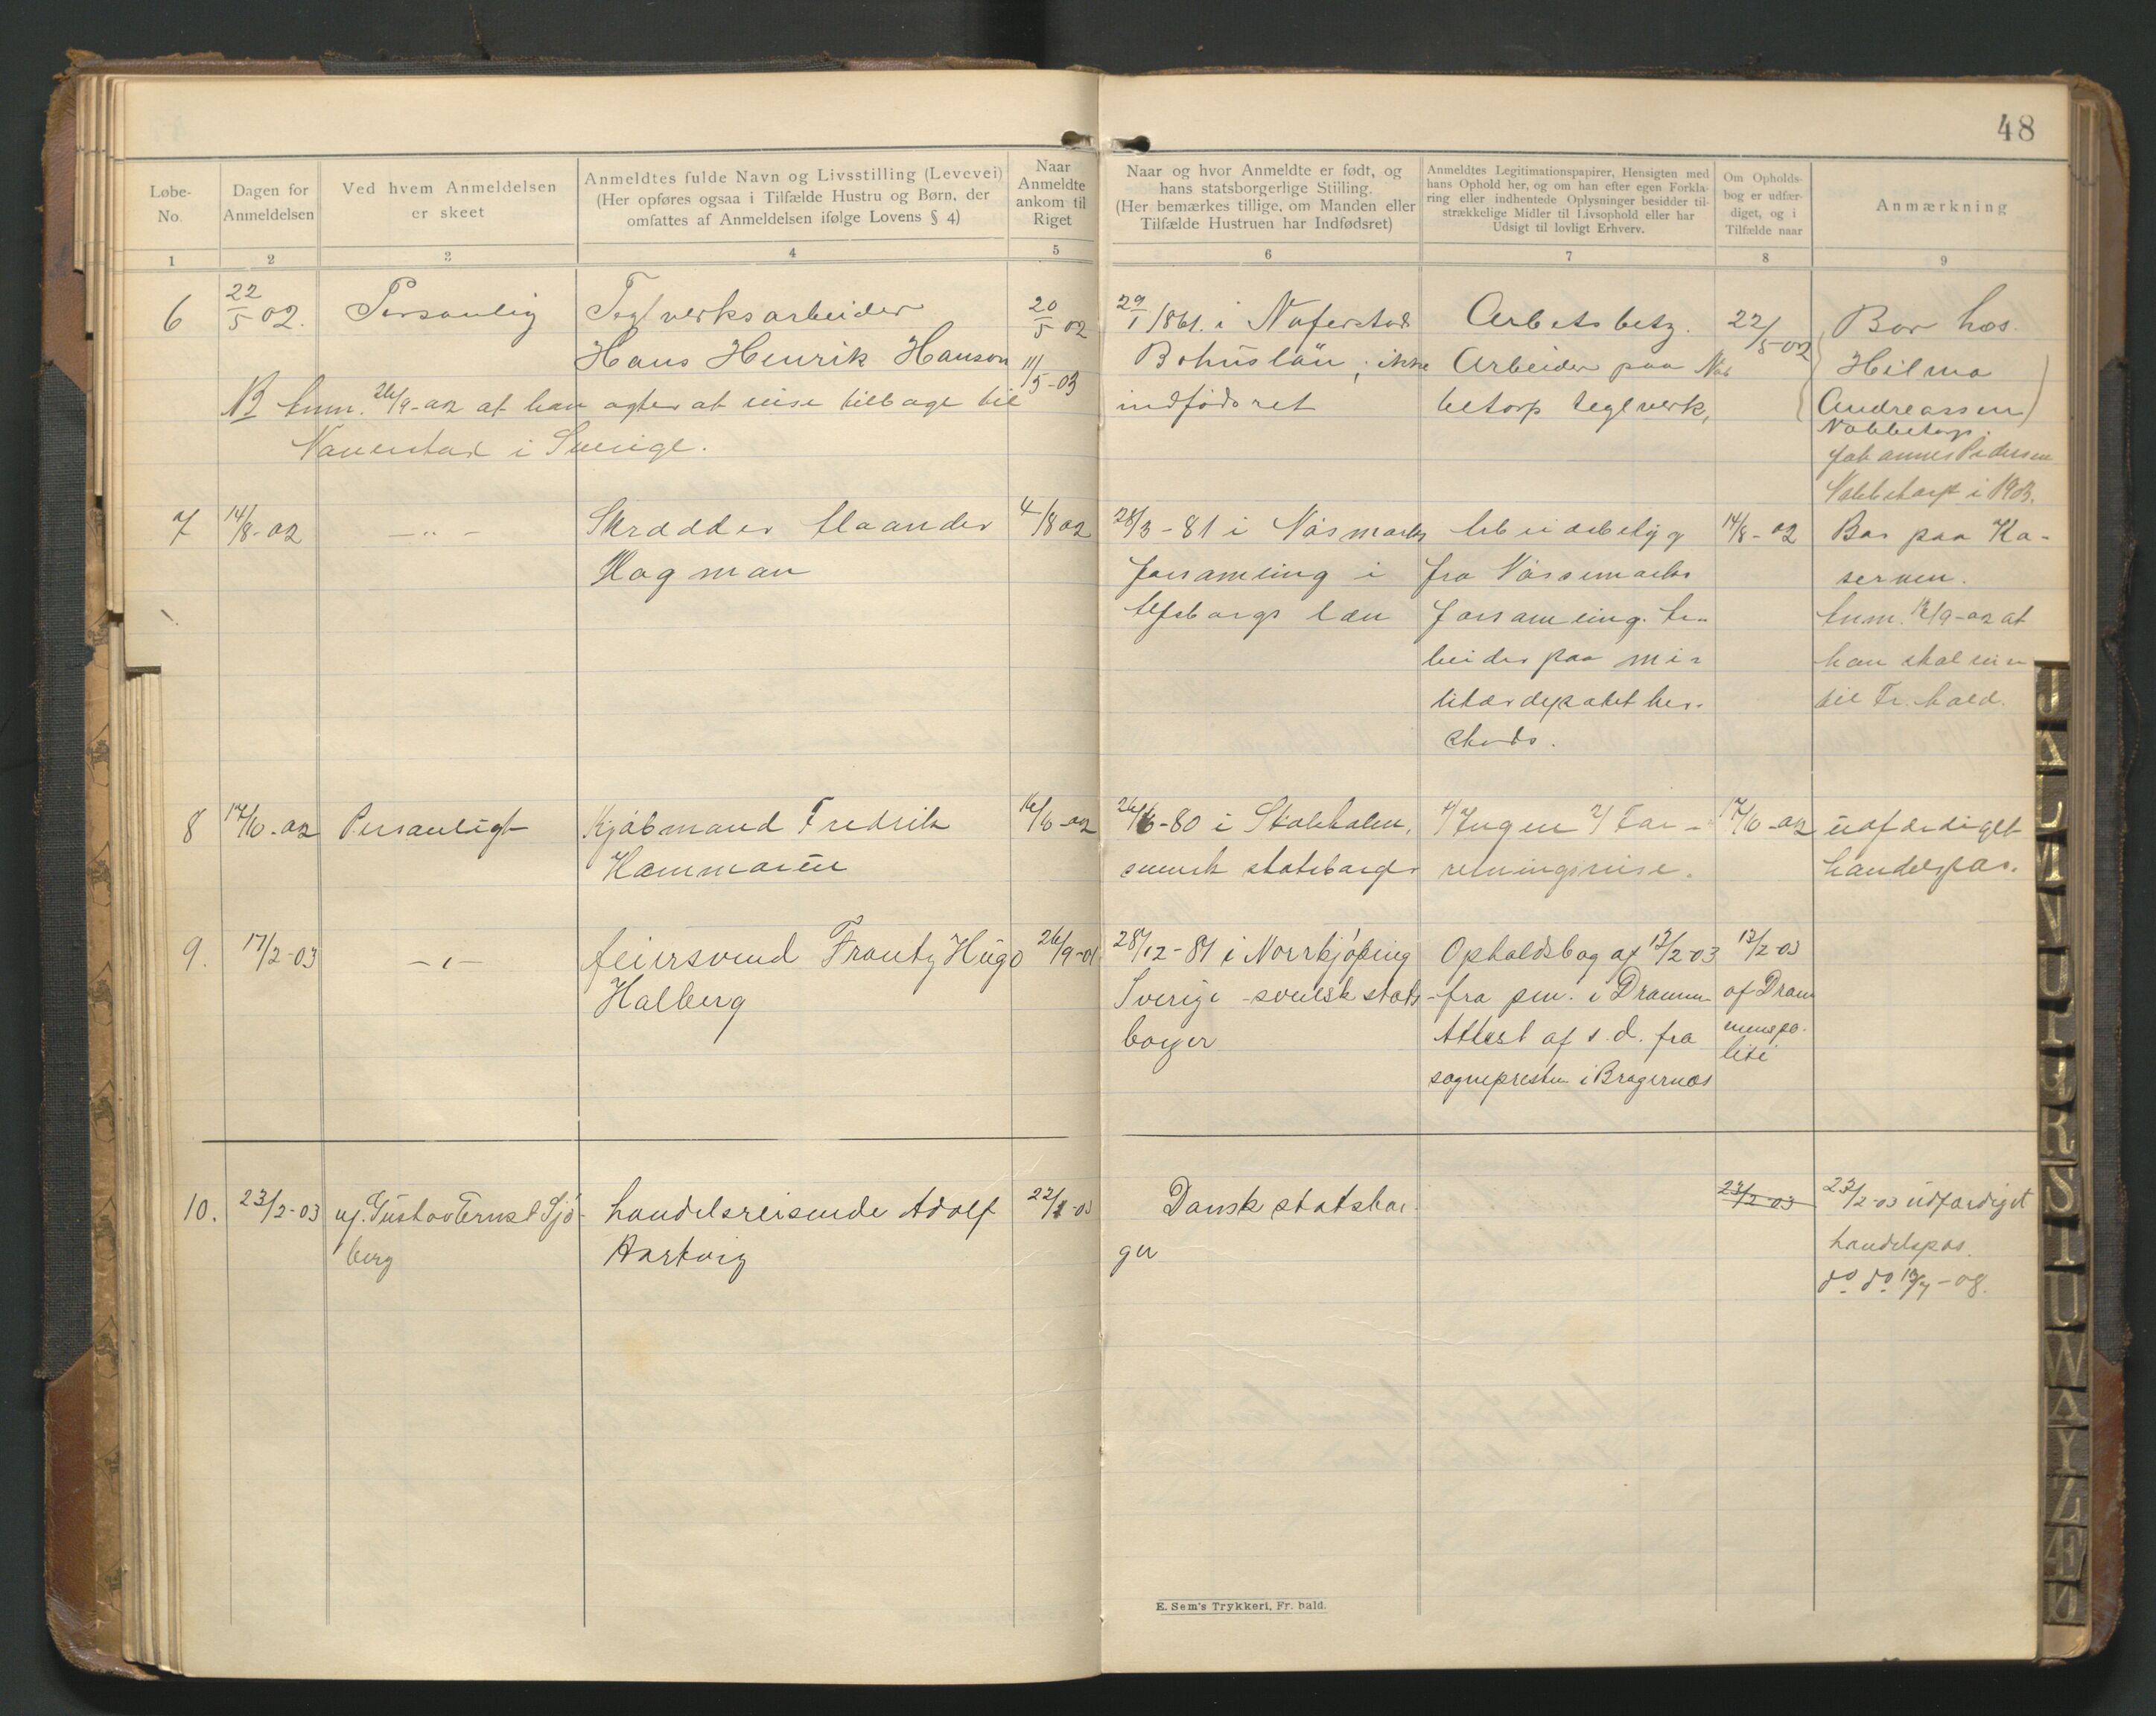 48
Løbe-
No.
Dagen for
Anmeldelsen
Ved hvem Anmeldelsen
er skeet
Anmeldtes fulde Navn og Livsstilling (Levevei)
(Her opføres ogsaa i Tilfælde Hustru og Børn, der
omfattes af Anmeldelsen ifølge Lovens § 4)
Naar
Anmeldte
ankom til
Riget
Naar og hvor Anmeldte er født, og
hans statsborgerlige Stilling.
(Her bemærkes tillige, om Manden eller
Tilfælde Hustruen har Indfødsret)
Anmeldtes Legitimationspapirer, Hensigten med
hans Ophold her, og om han efter egen Forkla-
ring eller indhentede Oplysninger besidder til-
strækkelige Midler til Livsophold eller har
Udsigt til lovligt Erhverv.
Om Opholds-
bog er udfær-
diget, og i
Tilfælde naar
Anmærkning
1 2 3 4 5 6 7 8 9
6
22/5 02.
Personlig
Teglverksarbeider
Hans Henrik Hanson
20/5 02
11/5-03
NB Anm. 26/9-02 at han agter at reise tilbage til
Naverstad i Sverige.
29/1 1861. i Naferstad
Bohuslän, ikke
indfødsret
Arbetsbetg.
Arbeider paa Nab
betorp teglverk,
22/5-02
Bor hos
Hilma
Andreassen
Nabbetorp.
Johannes Pedersen
Nabbetorp i 1903.
7
14/8-02
— " —
Skrædder Maander
Hagman
4/8 02
28/3-81 i Näsmarks
forsamling i
Elfsborgs län
Arbeidsbetyg
fra Nässemarks
forsamling. Ar-
beider paa mi-
litærdepotet her-
steds.
14/8-02
Bor paa Ka-
sernen.
Anm. 12/9-02 at
han skal reise
til Fr.hald.
8
17/10-02
Personligt
Kjøbmand Fredrik
Hammarin
16/10-02
26/6-80 i Stokholm,
svensk statsborger
1/ Ingen 2/ For-
retningsreise.
17/10-02
udfærdiget
handelspas.
9.
17/2-03
— " —
feiersvend Frantz Hugo
Halberg
26/9-01
28/12-81 i Norrkjøping
Sverige - svensk stats-
borger
Opholdsbog af 12/2-03
fra pm. i Drammen
Attest af s.d. fra
sognepresten i Bragernæs
12/2-03
af Dram
menspo-
liti
10.
23/2-03
uf. Gustav Ernst Sjö-
berg
handelsreisende Adolf
Hartvig
22/2-03
Dansk statsbor-
ger
23/2-03
23/2-03 udfærdiget
handelspas.
do do 13/7-08.
E. Sem's Trykkeri, Fr. hald.
J
K
L
M
N
O
P
Q
R
S
T
U
W
A
Y
Z
Æ
Ø